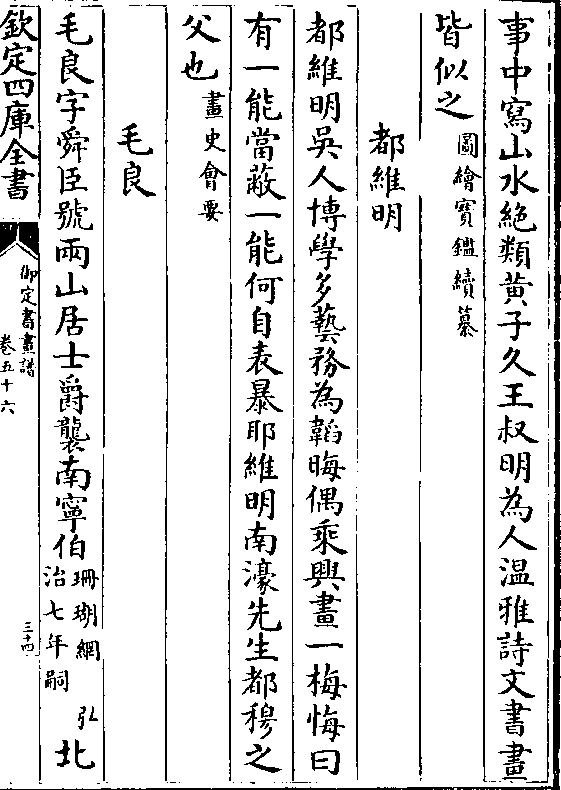 事中寫山水絶類黄子久王叔明為人温雅詩文書畫
皆似之圖繪寳鑑續纂
都維明
都維明吳人博學多藝務為韜晦偶乘興畫一梅悔曰
有一能當蔽一能何自表暴耶維明南濠先生都穆之
父也畫史會要
毛良
毛良字舜臣號兩山居士爵襲南寧伯珊瑚網 弘治七年嗣北
欽定四庫全書
御定書畫譜
卷五十六
三十四